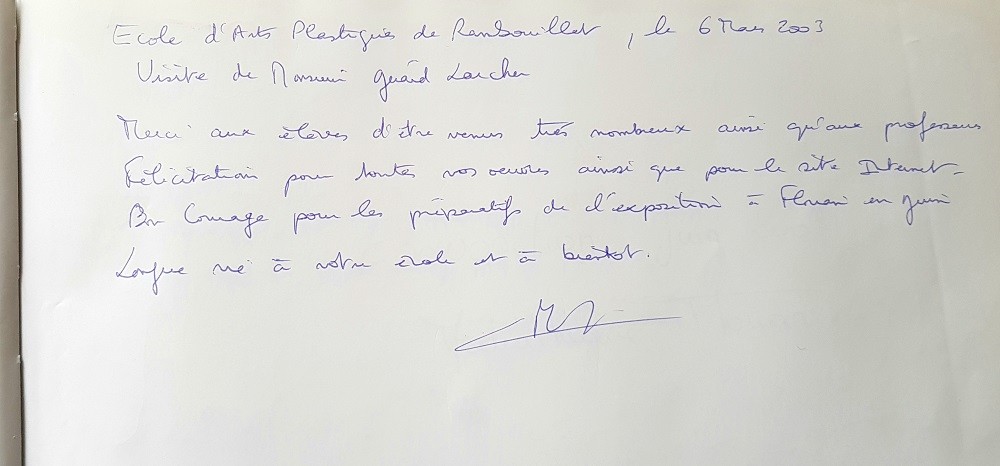 Ecole d'Arts Plastiques de Rambouillet, le 6 Mars 2003
Visite de Monsieur Gérard Larcher
Merci aux élèves d'être venus très nombreux ainsi qu'aux professeurs
Félicitation pour toutes vos oeuvres ainsi que pour le site Internet -
Bon Courage pour les préparatifs de l'exposition à en juin
Longue vie à votre école et à bientôt.